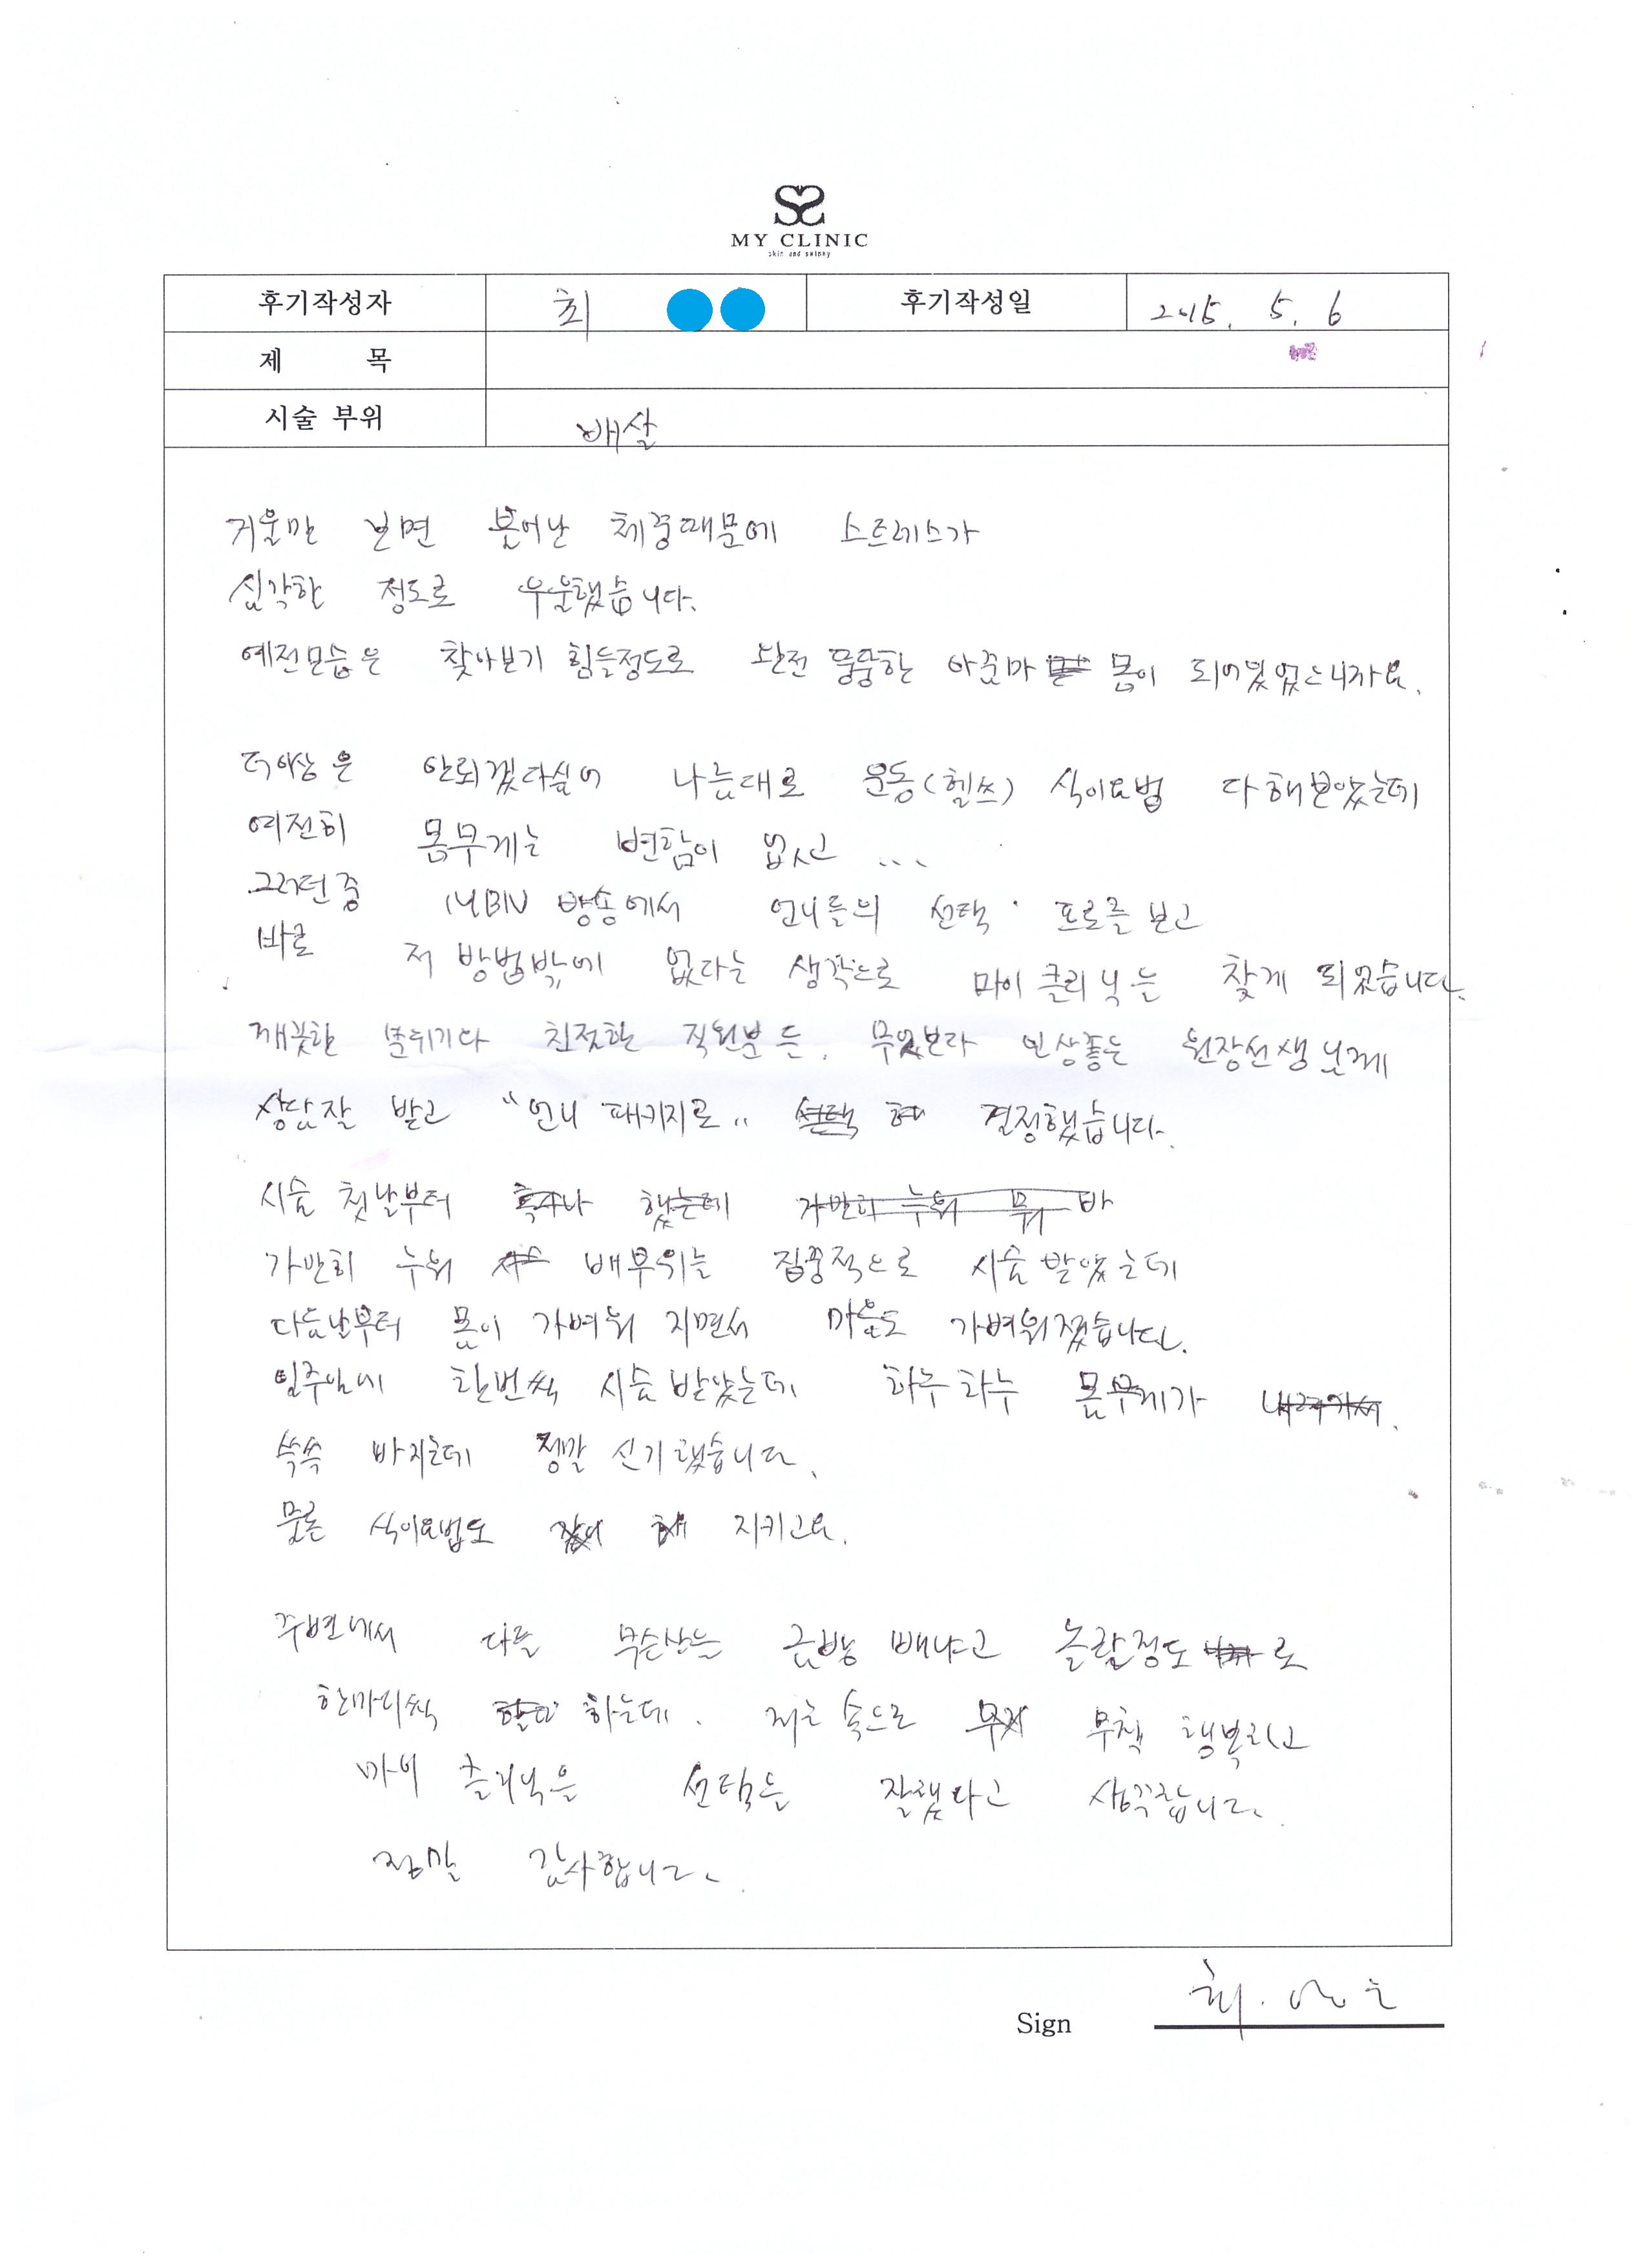 MY CLINIC
skin and skinny
후기작성자 최 후기작성일 2015. 5. 6
제 목
시술 부위 배살
거울만 보면 불어난 체중때문에 스트레스가
심각한 정도로 우울했습니다.
예전모습은 찾아보기 힘들정도로 완전 뚱뚱한 아줌마 몸이 되어있었으니까요.
더이상은 안되겠다싶어 나름대로 운동(헬쓰) 식이요법 다해보았는데
여전히 몸무게는 변함이 없고 ...
그러던중 방송에서 언니들의 선택 프로를 보고
바로 저 방법밖에 없다는 생각으로 마이클리닉을 찾게 되었습니다.
깨끗한 분위기다 친절한 직원분들, 무엇보다 인상좋은 원장선생님께
상담잘 받고 "언니 패키지로" 결정했습니다.
시술 첫날부터
가만히 누워 배부위를 집중적으로 시술받았는데
다음날부터 몸이 가벼워 지면서 마음도 가벼워졌습니다.
일주일에 한번씩 시술받았는데 하루하루 몸무게가
쑥쑥 빠지는데 정말 신기했습니다.
물론 식이요법도 지키고요.
주변에서 다들 무슨살을 금방 빼냐고 놀랄정도로
한마디씩 하는데. 저는 속으로 무척 행복하고
마이 클리닉을 선택을 잘했다고 생각합니다.
정말 감사합니다.
Sign